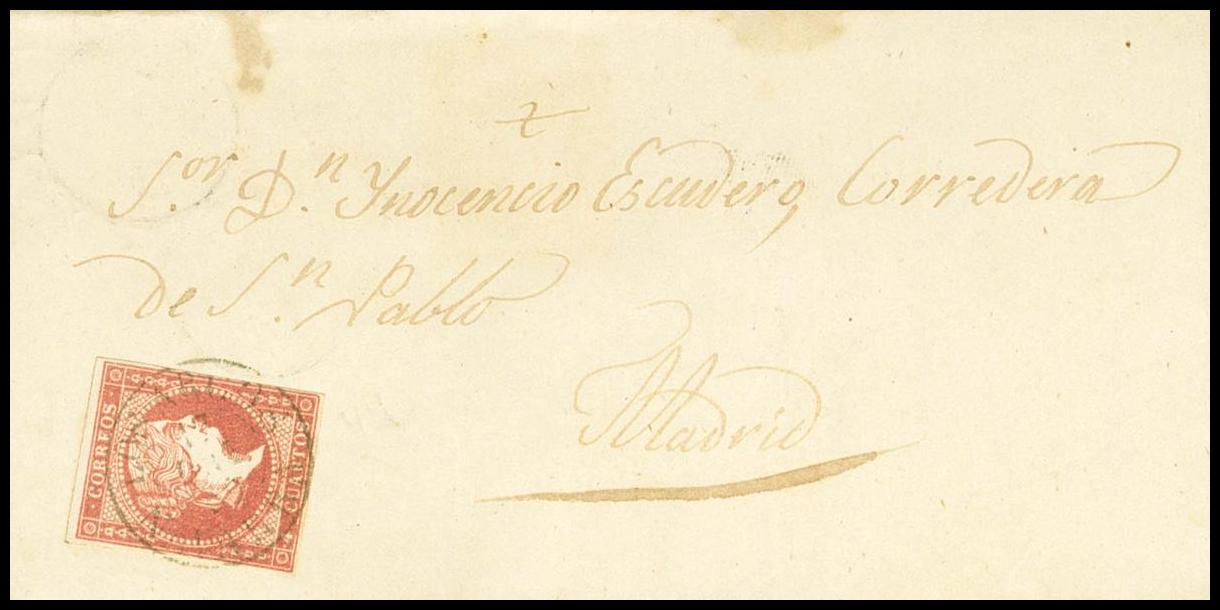 S.or D.n Ynocencio Escudero, Corredera
de S.n Pablo
Madrid
CORREOS
CUARTOS